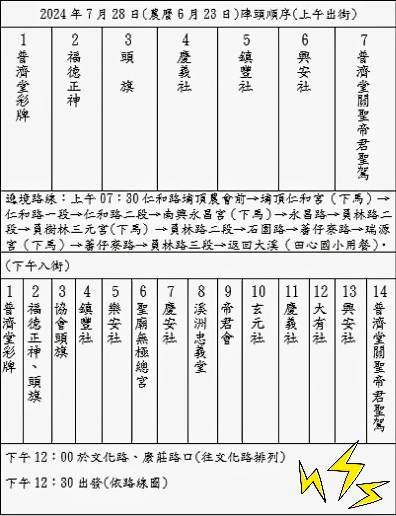 2024年7月28日(農曆6月23日)陣頭順序(上午出街)
1 普濟堂彩牌
2 福德正神
3 頭旗
4 慶義社
5 鎮豐社
6 興安社
7 普濟堂關聖帝君聖駕
遶境路線：上午07：30仁和路埔頂農會前→埔頂仁和宮（下馬）→
仁和路一段→仁和路二段→南興永昌宮（下馬）→永昌路→員林路二
段→員樹林三元宮(下馬)→員林路二段→石園路→著仔寮路→瑞源
宮（下馬）→著仔寮路→員林路三段→返回大溪（田心國小用餐）。
(下午入街)
1 普濟堂彩牌
2 福德正神、頭旗
3 協會頭旗
4 鎮豐社
5 樂安社
6 聖廟無極總宮
7 慶安社
8 溪洲忠義堂
9 帝君會
10 玄元社
11 慶義社
12 大有社
13 興安社
14 普濟堂關聖帝君聖駕
下午12：00於文化路、康莊路口(往文化路排列)
下午12：30出發(依路線圖)